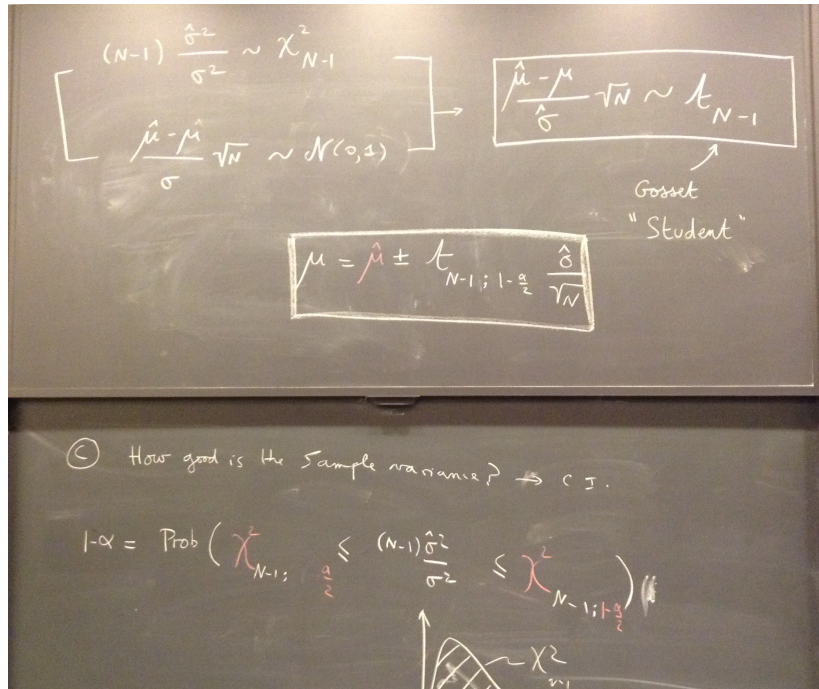 (N-1) σ̂²/σ² ~ χ²_{N-1}
(μ̂ - μ̂)/σ √N ~ N(0,1)
→ (μ̂ - μ)/σ̂ √N ~ t_{N-1}
Gosset
"Student"
μ = μ̂ ± t_{N-1; 1-α/2} σ̂/√N
Ⓒ How good is the sample variance? → CI.
1-α = Prob( χ²_{N-1; α/2} ≤ (N-1)σ̂²/σ² ≤ χ²_{N-1; 1-α/2} )
~ χ²